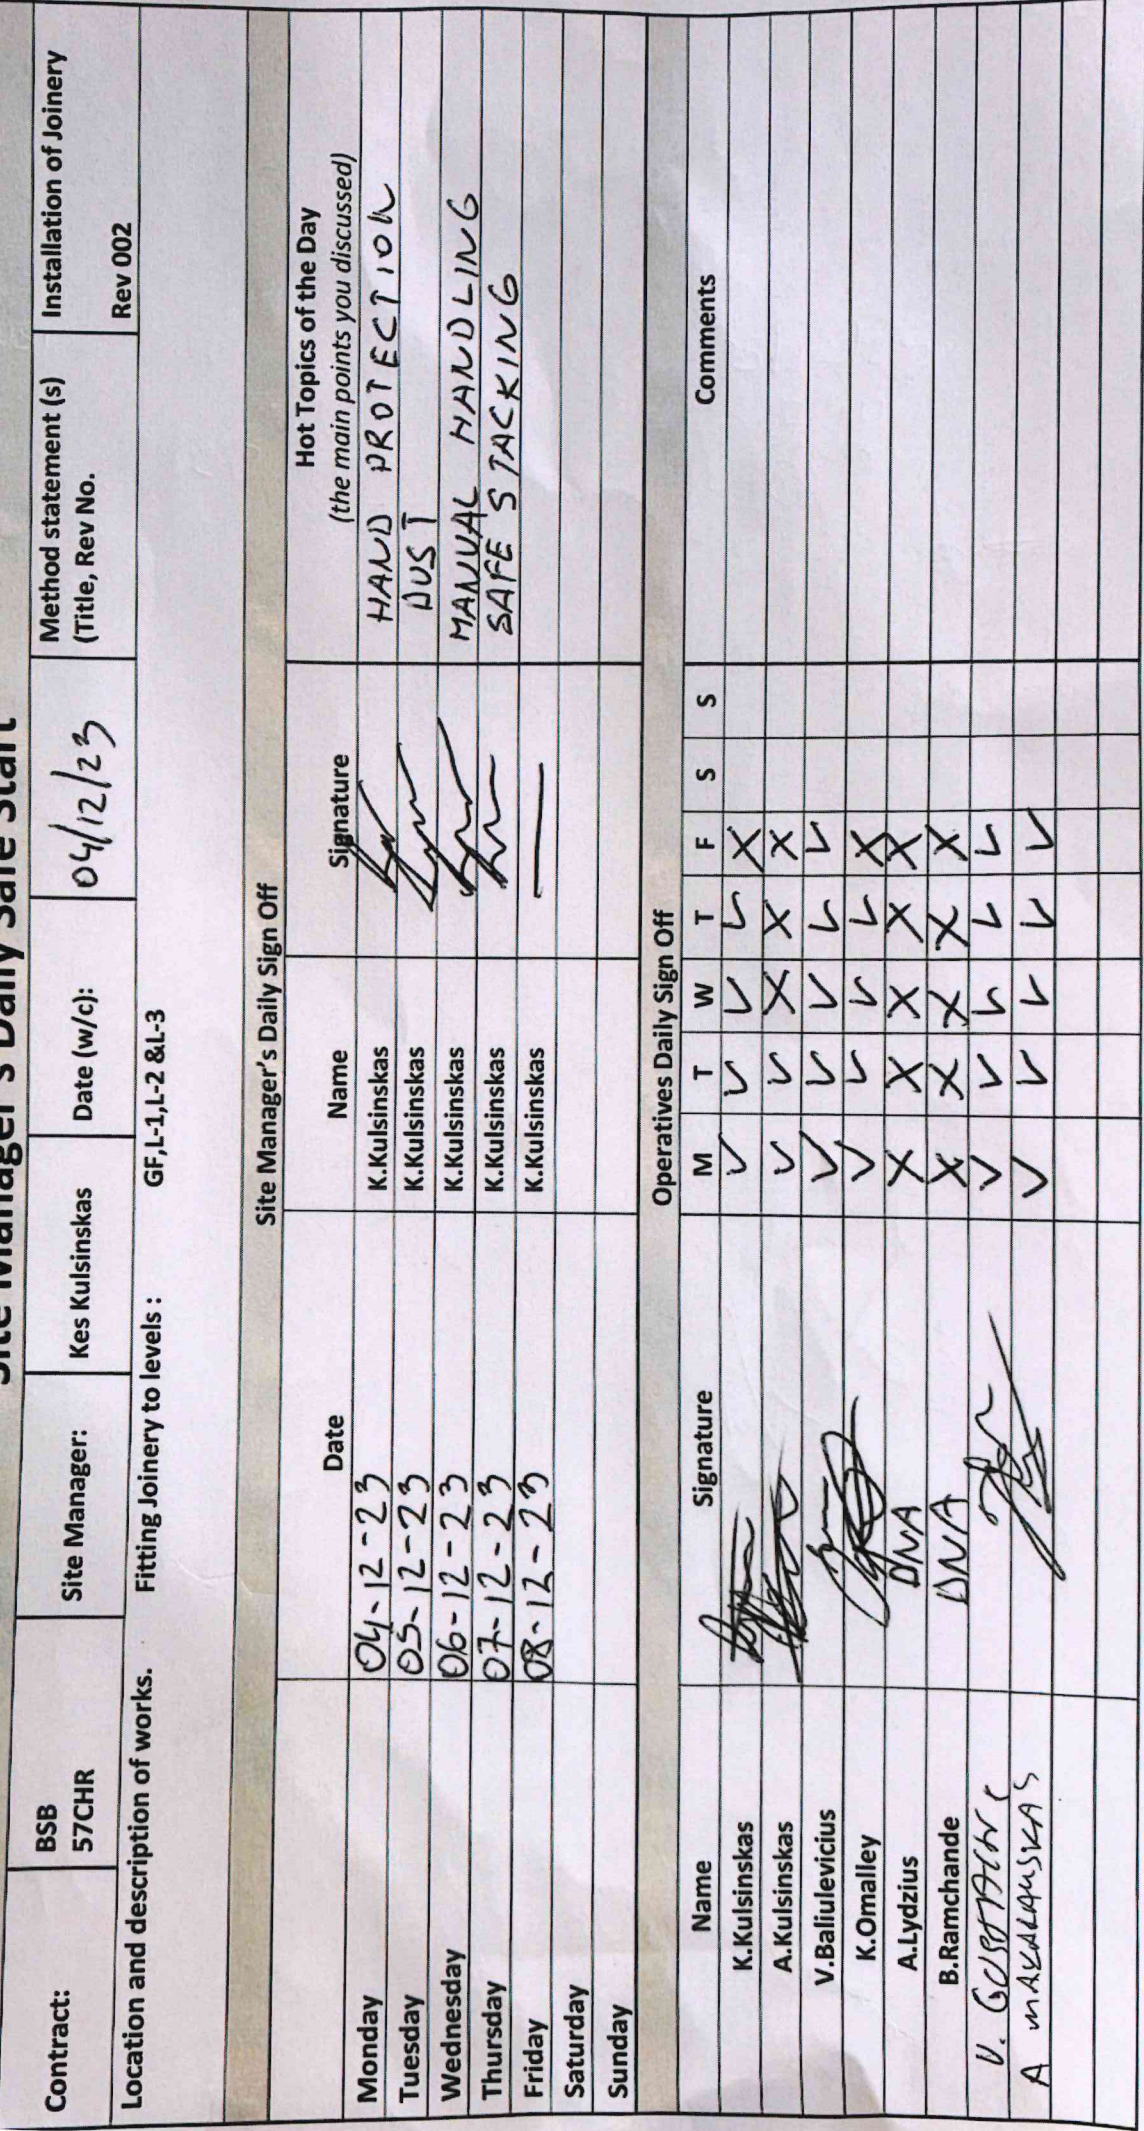 Site Manager's Daily Safe Start
Contract: BSB 57CHR Site Manager: Kes Kulsinskas Date (w/c): 04/12/23 Method statement (s) (Title, Rev No. Installation of Joinery Rev 002
Location and description of works. Fitting Joinery to levels : GF,L-1,L-2 &L-3
Site Manager's Daily Sign Off
Date Name Signature Hot Topics of the Day
(the main points you discussed)
Monday 04-12-23 K.Kulsinskas HAND PROTECTION
Tuesday 05-12-23 K.Kulsinskas DUST
Wednesday 06-12-23 K.Kulsinskas MANUAL HANDLING
Thursday 07-12-23 K.Kulsinskas SAFE STACKING
Friday 08-12-23 K.Kulsinskas —
Saturday
Sunday
Operatives Daily Sign Off
Name Signature M T W T F S S Comments
K.Kulsinskas ✓ ✓ ✓ ✓ X
A.Kulsinskas ✓ ✓ X X X
V.Baliulevicius ✓ ✓ ✓ ✓ ✓
K.Omalley ✓ ✓ ✓ ✓ X
A.Lydzius DNA X X X X X
B.Ramchande DNA X X X X X
V. ✓ ✓ ✓ ✓ ✓
A MAKARAUSKAS ✓ ✓ ✓ ✓ ✓